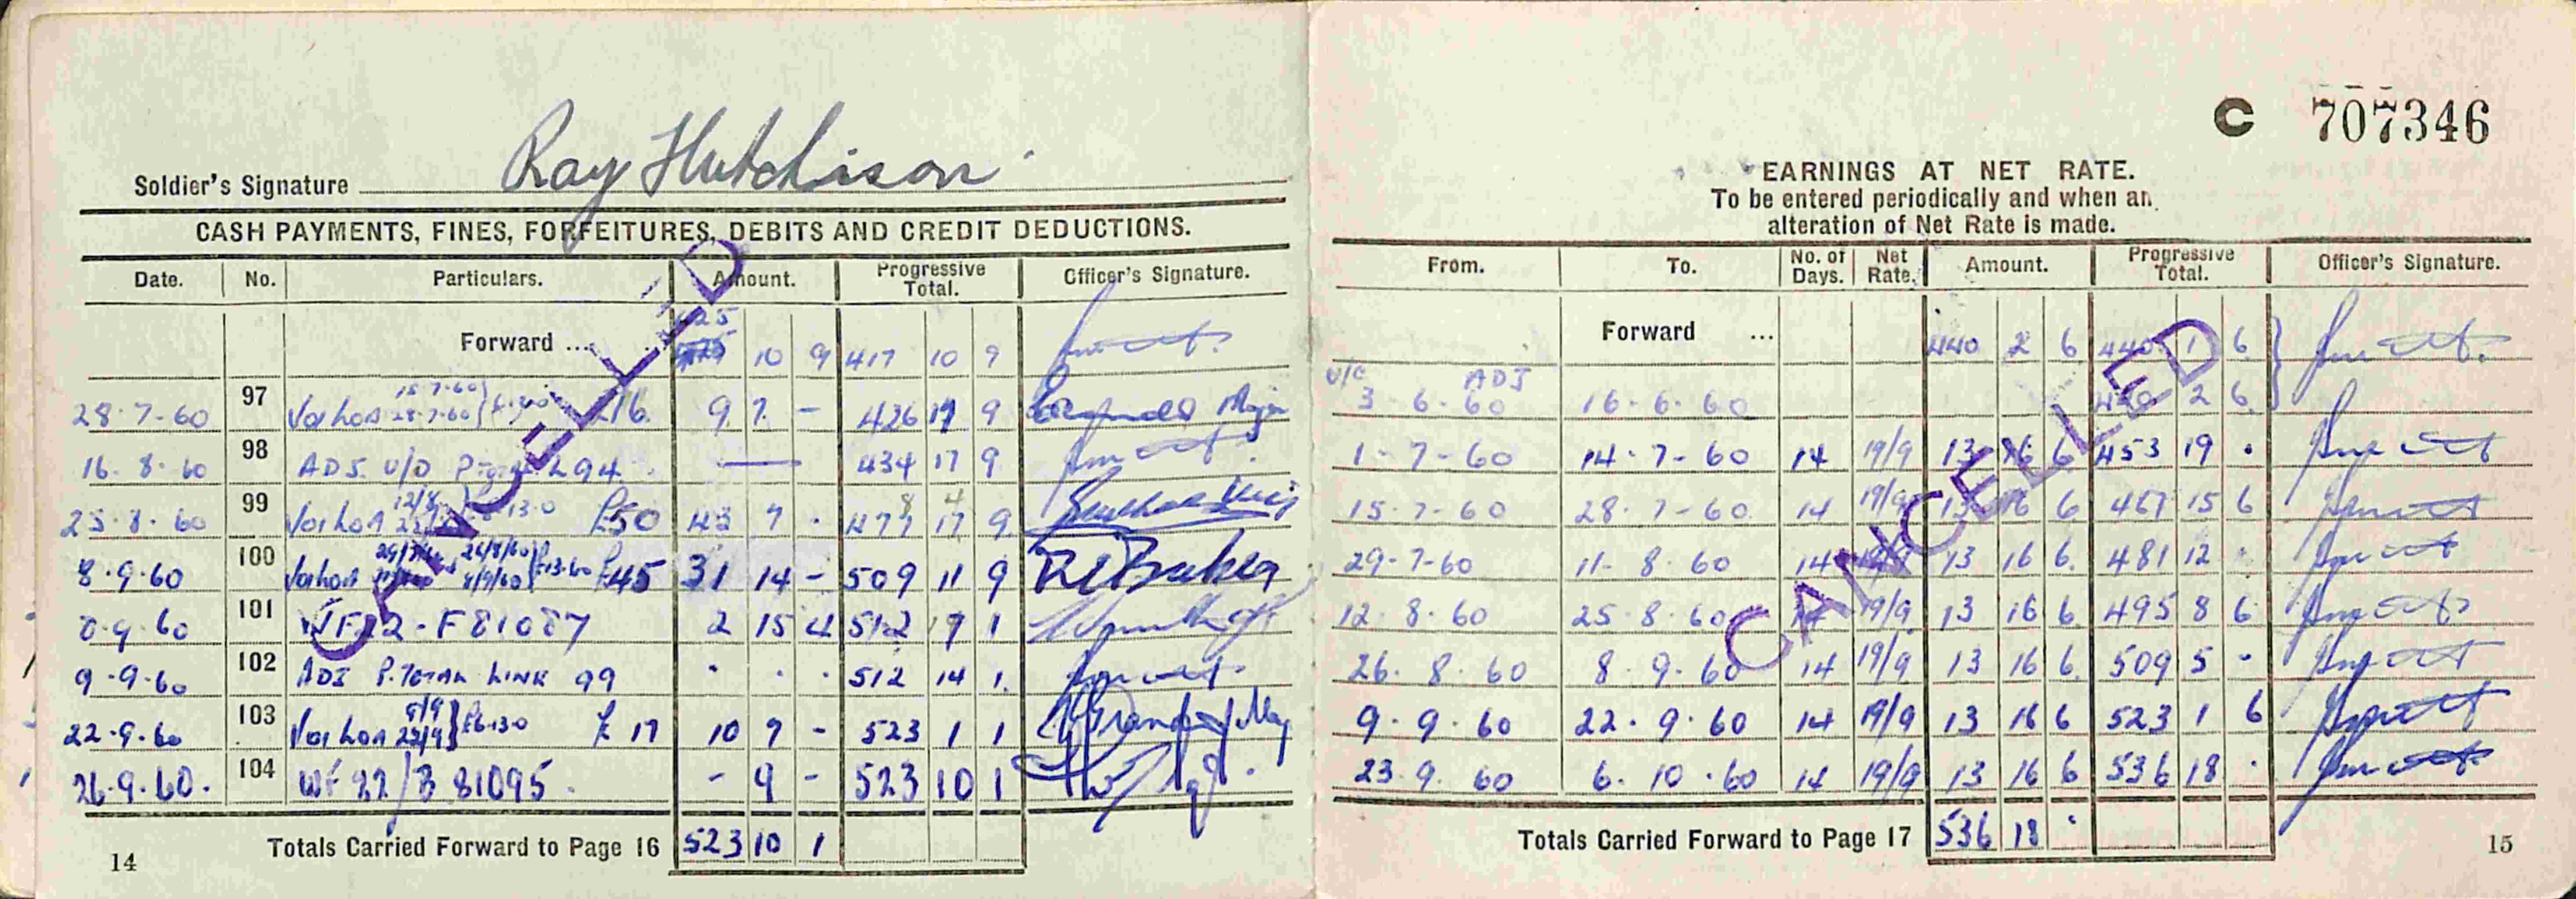 Soldier's Signature Ray Hutchison
CASH PAYMENTS, FINES, FORFEITURES, DEBITS AND CREDIT DEDUCTIONS.
Date. No. Particulars. Amount. Progressive Total. Officer's Signature.
Forward ... 425 10 9 417 10 9
28.7.60 97 15.7.60 28.7.60 16. 9 7 - 426 17 9
16.8.60 98 ADJ. U/D 94 — 434 17 9
25.8.60 99 £50 43 7 . 477 17 9
8.9.60 100 £45 31 14 - 509 11 9
8.9.60 101 F81087 2 15 4 512 1
9.9.60 102 ADJ P. TOTAL LINE 99 . . . 512 14 1.
22.9.60 103 £6-13-0 £ 17 10 9 - 523 1 1
26.9.60. 104 WF 22/B 81095. - 9 - 523 10 1
Totals Carried Forward to Page 16 523 10 1
14
CANCELLED
C 707346
EARNINGS AT NET RATE.
To be entered periodically and when an
alteration of Net Rate is made.
From. To. No. of Days. Net Rate. Amount. Progressive Total. Officer's Signature.
Forward ... 440 2 6 440 1 6
U/C ADJ
3 6-60 16-6-60 440 2 6.
1-7-60 14-7-60 14 19/9 13 16 6 453 19 .
15-7-60 28-7-60 14 19/9 13 16 6 467 15 6
29-7-60 11-8-60 14 19/9 13 16 6. 481 12 .
12.8.60 25.8.60 14 19/9 13 16 6 495 8 6
26.8.60 8.9.60 14 19/9 13 16 6. 509 5 -
9.9.60 22.9.60 14 19/9 13 16 6 523 1 6
23.9.60 6.10.60 14 19/9 13 16 6 536 18 .
Totals Carried Forward to Page 17 536 18 .
15
CANCELLED